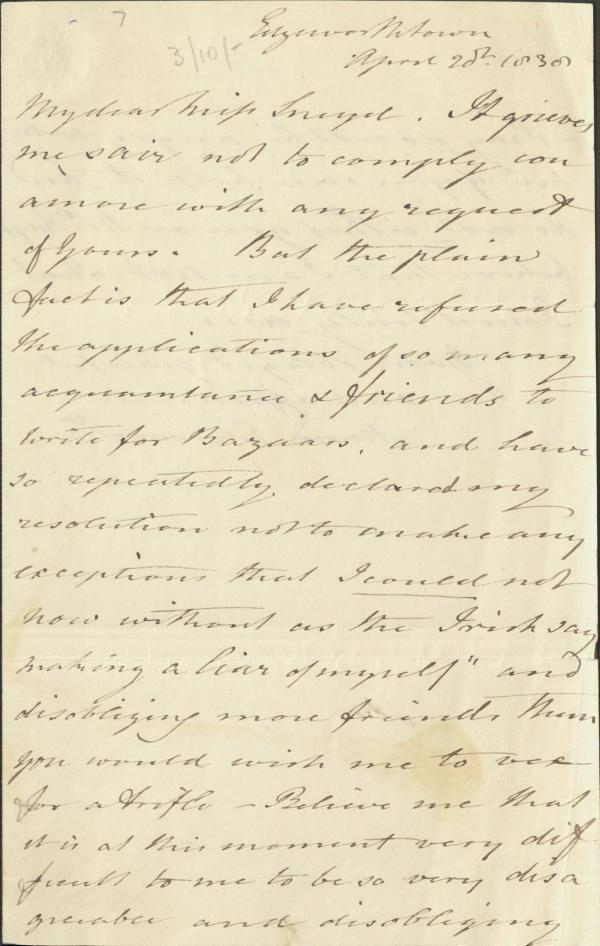 7
3/10/-
Edgeworthstown
April 20th 1838
My dear Miss Sneyd. It grieves
me sair not to comply con
amore with any request
of yours. But the plain
fact is that I have refused
the applications of so many
acquaintance & friends to
write for Bazaars, and have
so repeatedly declared my
resolution not to make any
exceptions that I could not
now without as the Irish say
making a liar of myself" and
disobliging more friends than
you would wish me to vex
for a trifle - Believe me that
it is at this moment very dif
ficult to me to be so very disa
greeable and disobliging